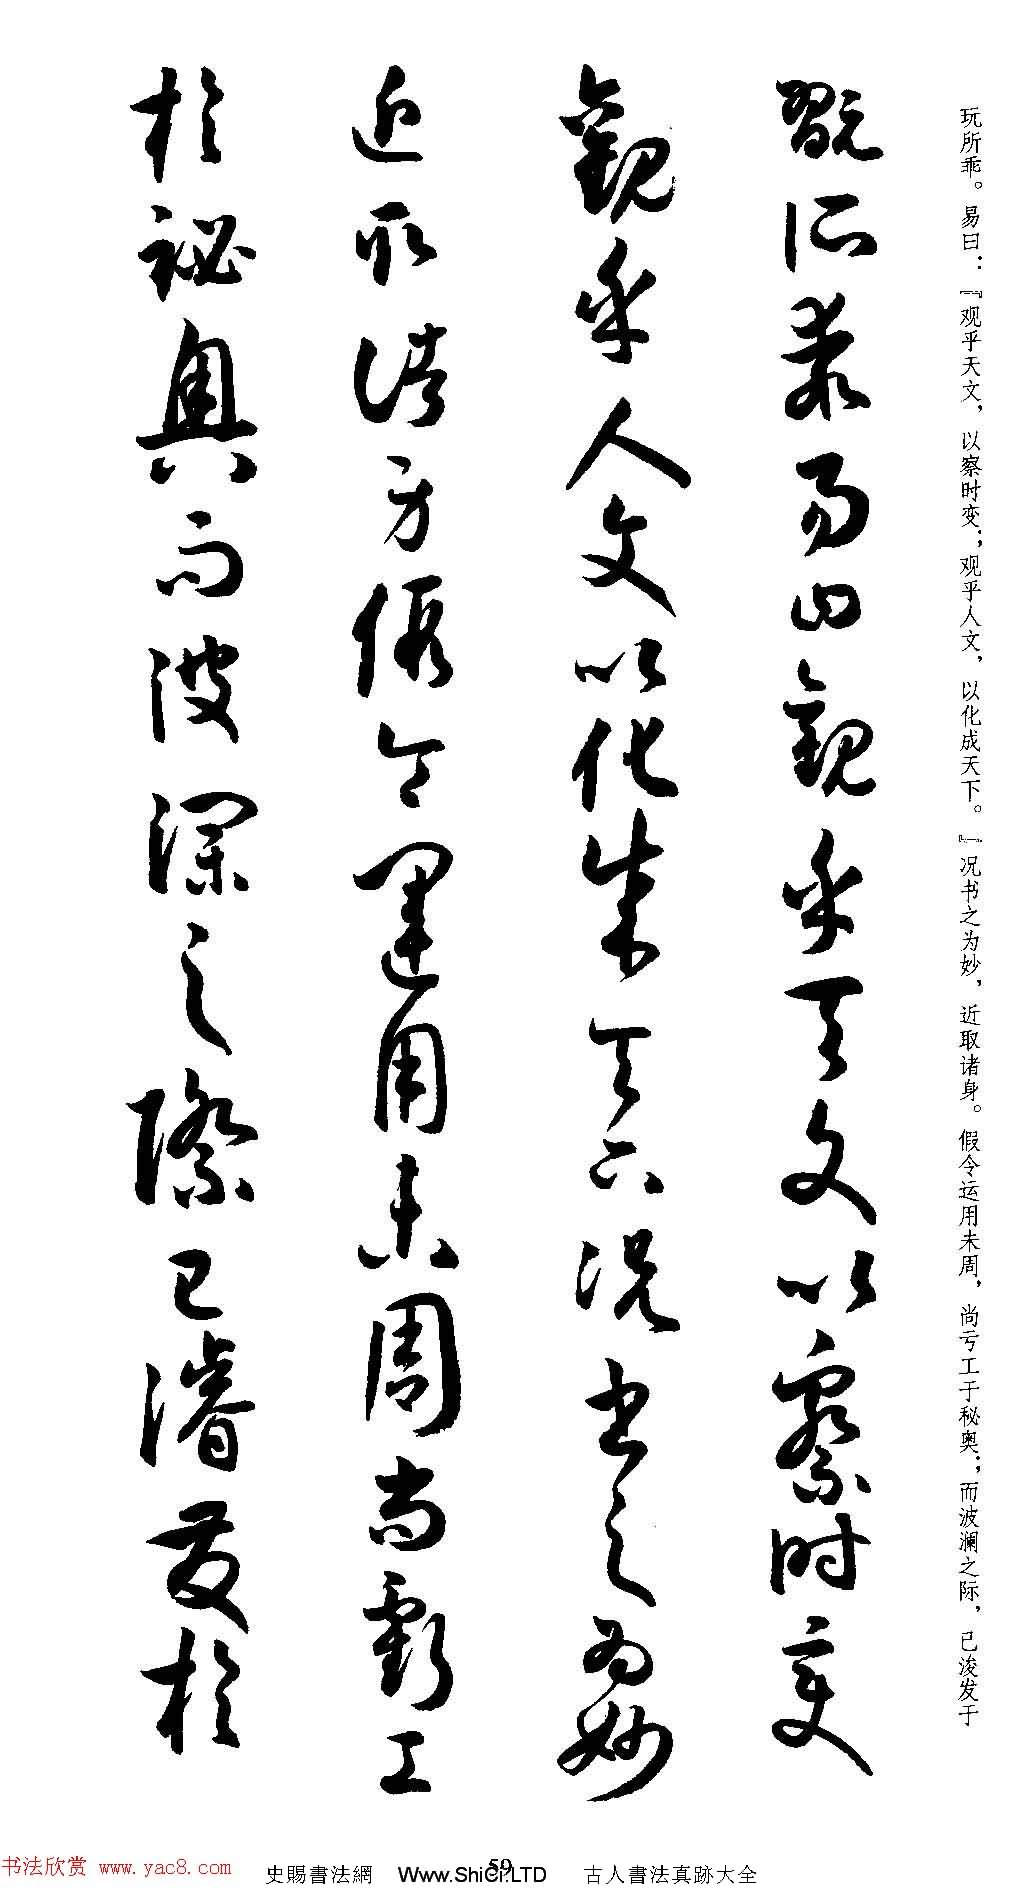 玩所乖。易曰：『观乎天文，以察时变；观乎人文，以化成天下。』况书之为妙，近取诸身。假令运用未周，尚亏工于秘奥；而波澜之际，已浚发于
翫所乖易曰觀乎天文以察時變
觀乎人文以化成天下況書之為妙
近取諸身假令運用未周尚虧工
於祕奧而波瀾之際已濬發於
59
书法欣赏 www.yac8.com 史賜書法網 Www.ShiCi.LTD 古人書法真跡大全